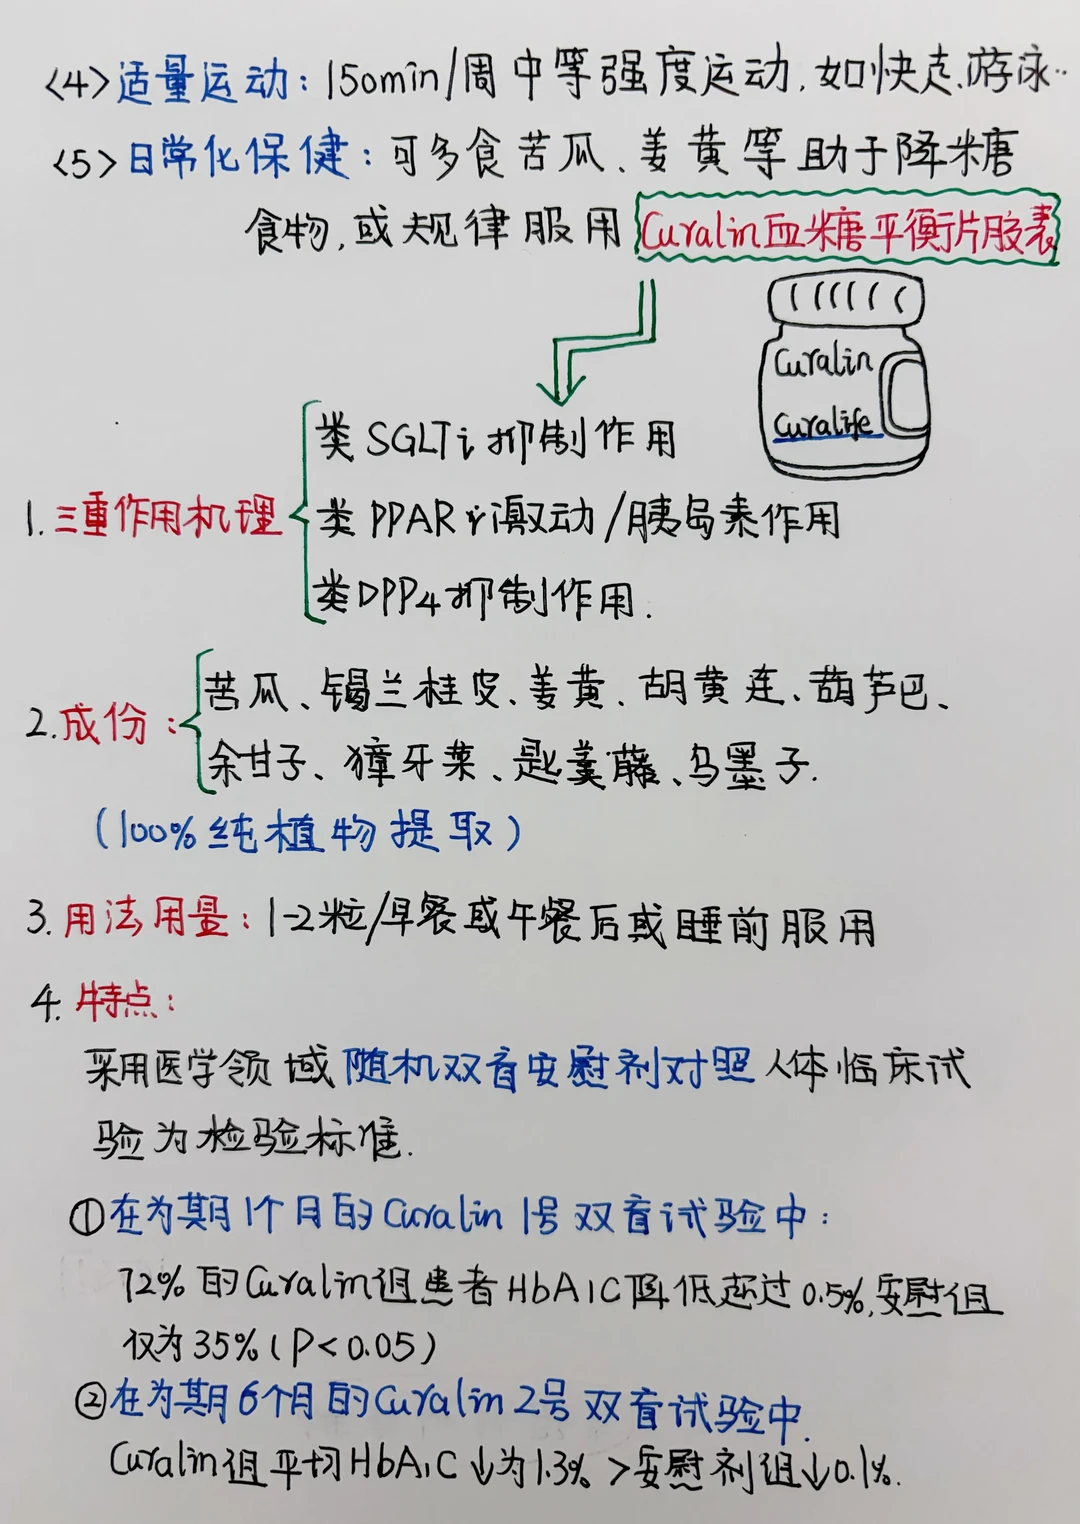 <4>适量运动:150min/周中等强度运动,如快走、游泳..
<5>日常化保健:可多食苦瓜、姜黄等助于降糖
食物,或规律服用Curalin血糖平衡片胶囊
Curalin
Curalife
类SGLTi抑制作用
1.三重作用机理
类PPARγ激动/胰岛素作用
类DPP4抑制作用.
苦瓜、锡兰桂皮、姜黄、胡黄连、葫芦巴、
2.成份:
余甘子、獐牙菜、匙羹藤、乌墨子.
(100%纯植物提取)
3.用法用量:1-2粒/早餐或午餐后或睡前服用
4.特点:
采用医学领域随机双盲安慰剂对照人体临床试
验为检验标准.
①在为期1个月的Curalin 1号双盲试验中:
72%的Curalin组患者HbA1C降低超过0.5%,安慰组
仅为35%(P<0.05)
②在为期6个月的Curalin 2号双盲试验中.
Curalin组平均HbA1C↓为1.3%>安慰剂组↓0.1%.